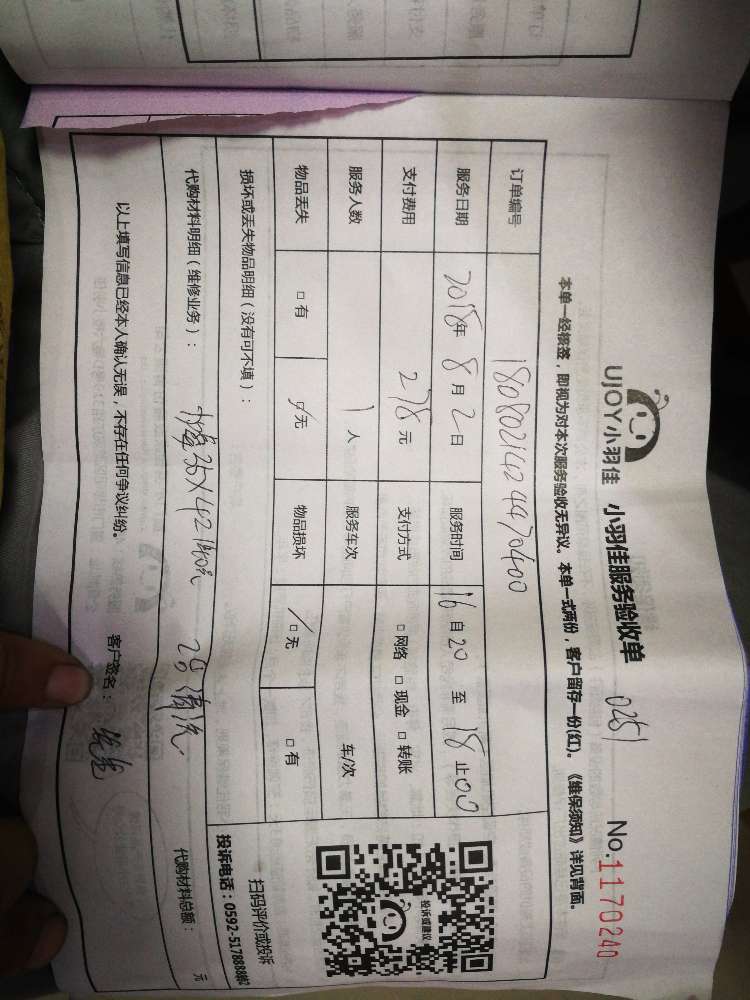 UJOY小羽佳 小羽佳服务验收单 0251 No.1170240
本单一经核签，即视为对本次服务验收无异议。本单一式两份，客户留存一份(红)。《维保须知》详见背面。
订单编号 1808021424470400
服务日期 2018年 8月2日 服务时间 16自20至18止00
支付费用 278元 支付方式 □网络 □现金 □转账
服务人数 1人 服务车次 车/次
物品丢失 □有 □无 物品损坏 □无 □有
损坏或丢失物品明细（没有可不填）：
代购材料明细（维修业务）： 35×4=140元 清洗 代购材料总额： 元
以上填写信息已经本人确认无误，不存在任何争议纠纷。 客户签名：
投诉或建议
扫码评价或投诉
投诉电话：0592-5178888转2